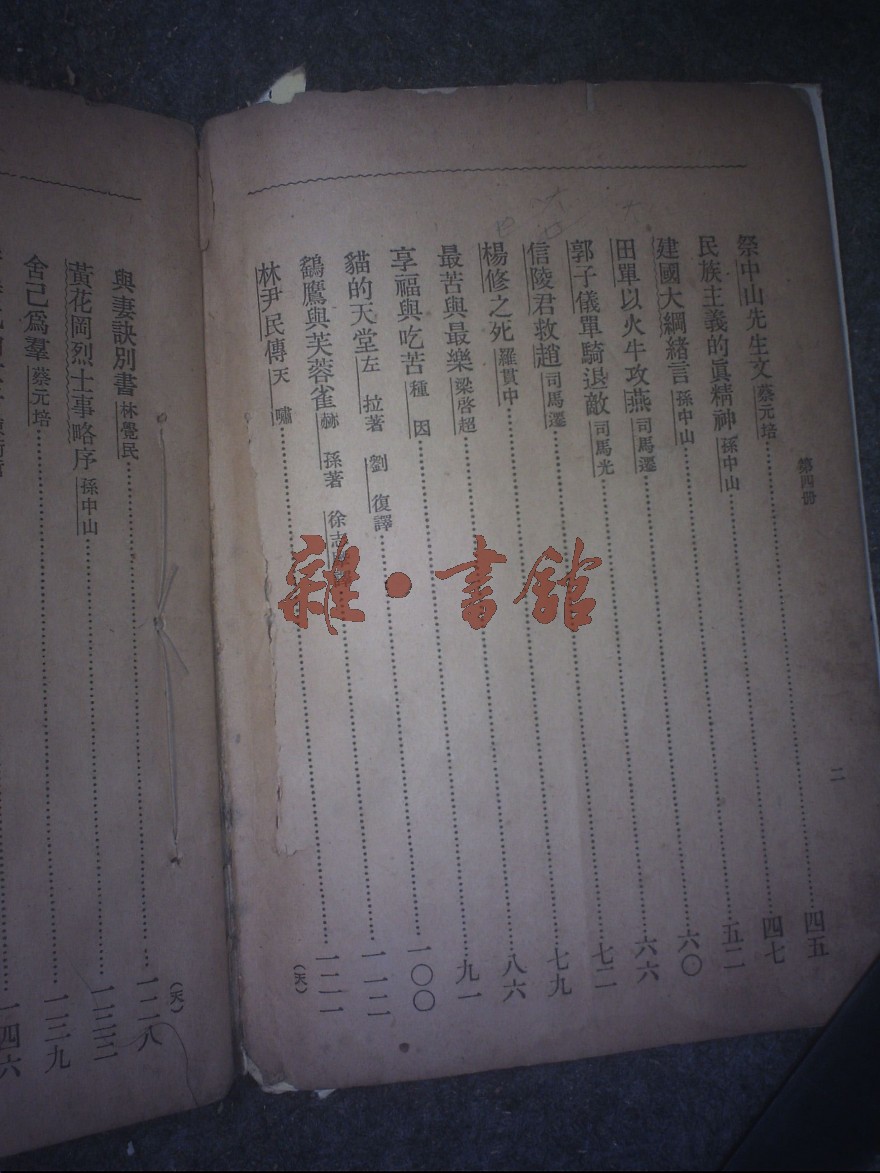 第四册
二
祭中山先生文 蔡元培 四五
民族主義的眞精神 孫中山 四七
建國大綱緒言 孫中山 五二
田單以火牛攻燕 司馬遷 六〇
郭子儀單騎退敵 司馬光 六六
信陵君救趙 司馬遷 七二
楊修之死 羅貫中 七九
最苦與最樂 梁啓超 八六
享福與吃苦 種因 九一
貓的天堂 左拉著 劉復譯 一〇〇
鷂鷹與芙蓉雀 赫孫著 徐志 一一二
林尹民傳 天嘯 一二一
(天)
與妻訣別書 林覺民 一二八
黃花岡烈士事略序 孫中山 一三三
舍己爲羣 蔡元培 一三九
一四六
(天)
雜·書館